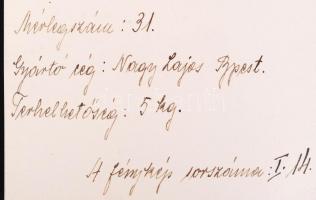 Mérlegszám : 31.
Gyártó cég : Nagy Lajos Bpest.
Terhelhetőség : 5 kg.
A fénykép sorszáma : I. 14.